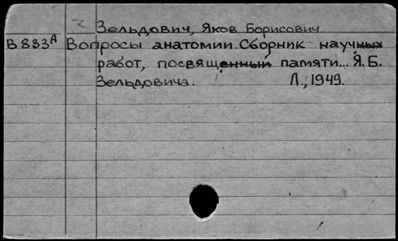 Зельдович, Яков Борисович
В 833А Вопросы анатомии. Сборник научных
работ, посвященный памяти... Я.Б.
Зельдовича. Л., 1949.